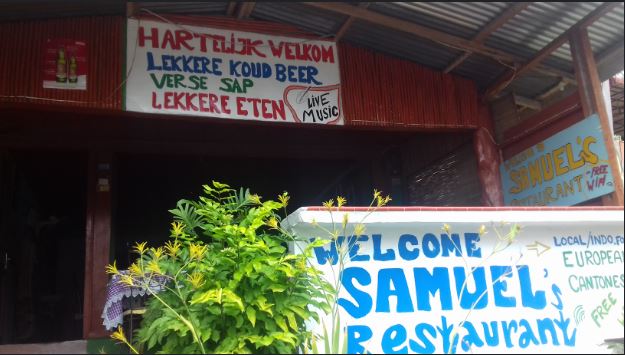 HARTELIJK WELKOM
LEKKERE KOUD BEER
VERSE SAP
LEKKERE ETEN
LIVE
MUSIC
SAMUEL'S
RESTAURANT
FREE
WELCOME
SAMUEL's
Restaurant
LOCAL/INDO,
EUROPEAN
CANTONES
FREE